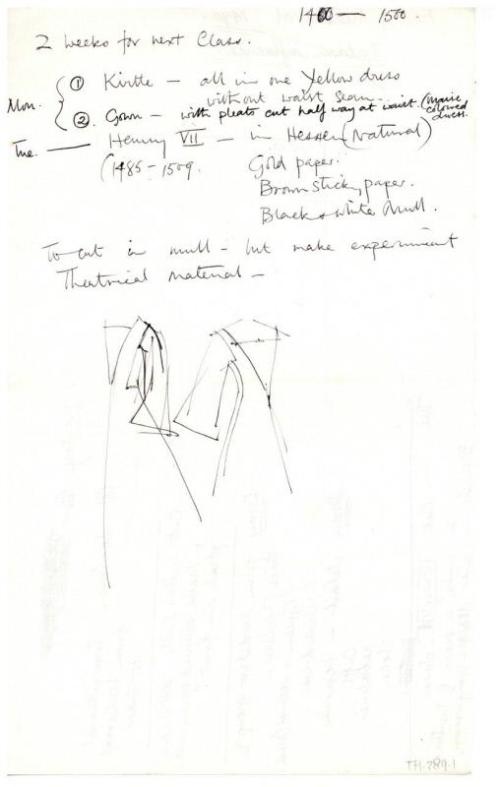 1400 — 1500.
2 weeks for next Class.
Mon. ① Kirtle — all in one Yellow dress
without waist seam.
② Gown — with pleats cut half way at waist. (Marie coloured dress.
Tue. — Henry VII — in Hessen (Natural)
(1485 – 1509.
Gold paper.
Brown sticky paper.
Black & white Mull.
To cut in mull – but make experiment
Theatrical material —
TH-289-1